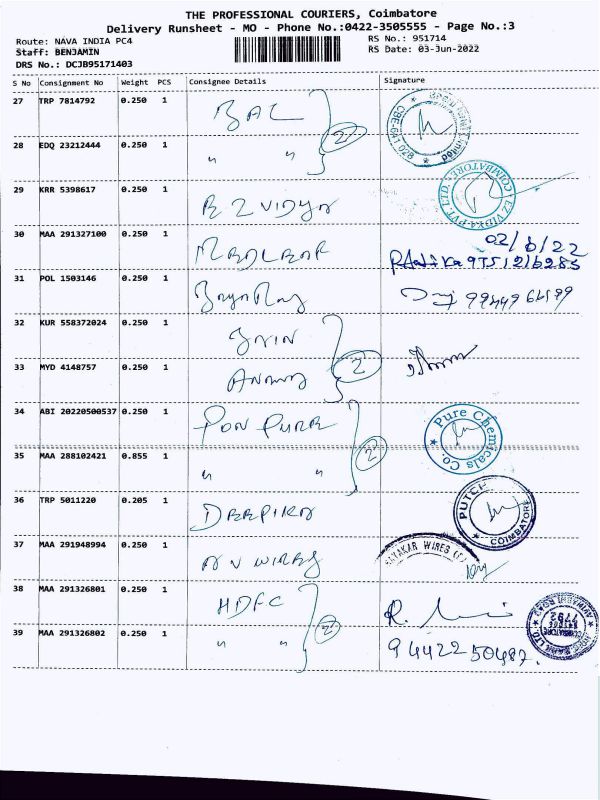 THE PROFESSIONAL COURIERS, Coimbatore
Delivery Runsheet - MO - Phone No.:0422-3505555 - Page No.:3
Route: NAVA INDIA PC4 RS No.: 951714
Staff: BENJAMIN RS Date: 03-Jun-2022
DRS No.: DCJB95171403
S No Consignment No Weight PCS Consignee Details Signature
27 TRP 7814792 0.250 1 BAL
28 EDQ 23212444 0.250 1 " " 2
29 KRR 5398617 0.250 1 EZ VIDYA
COIMBATORE EZ VIDYA PVT. LTD
30 MAA 291327100 0.250 1 MEDLEAF 02/6/22
31 POL 1503146 0.250 1
32 KUR 558372024 0.250 1 JAIN
33 MYD 4148757 0.250 1 ANAND 2
34 ABI 20220500537 0.250 1 PON PURE
Pure Chemicals Co.
35 MAA 288102421 0.855 1 " " 2
36 TRP 5011220 0.205 1 DEEPIKA
COIMBATORE
37 MAA 291948994 0.250 1 N V WIRES
WIRES
38 MAA 291326801 0.250 1 HDFC
39 MAA 291326802 0.250 1 " " 2 9442250487.